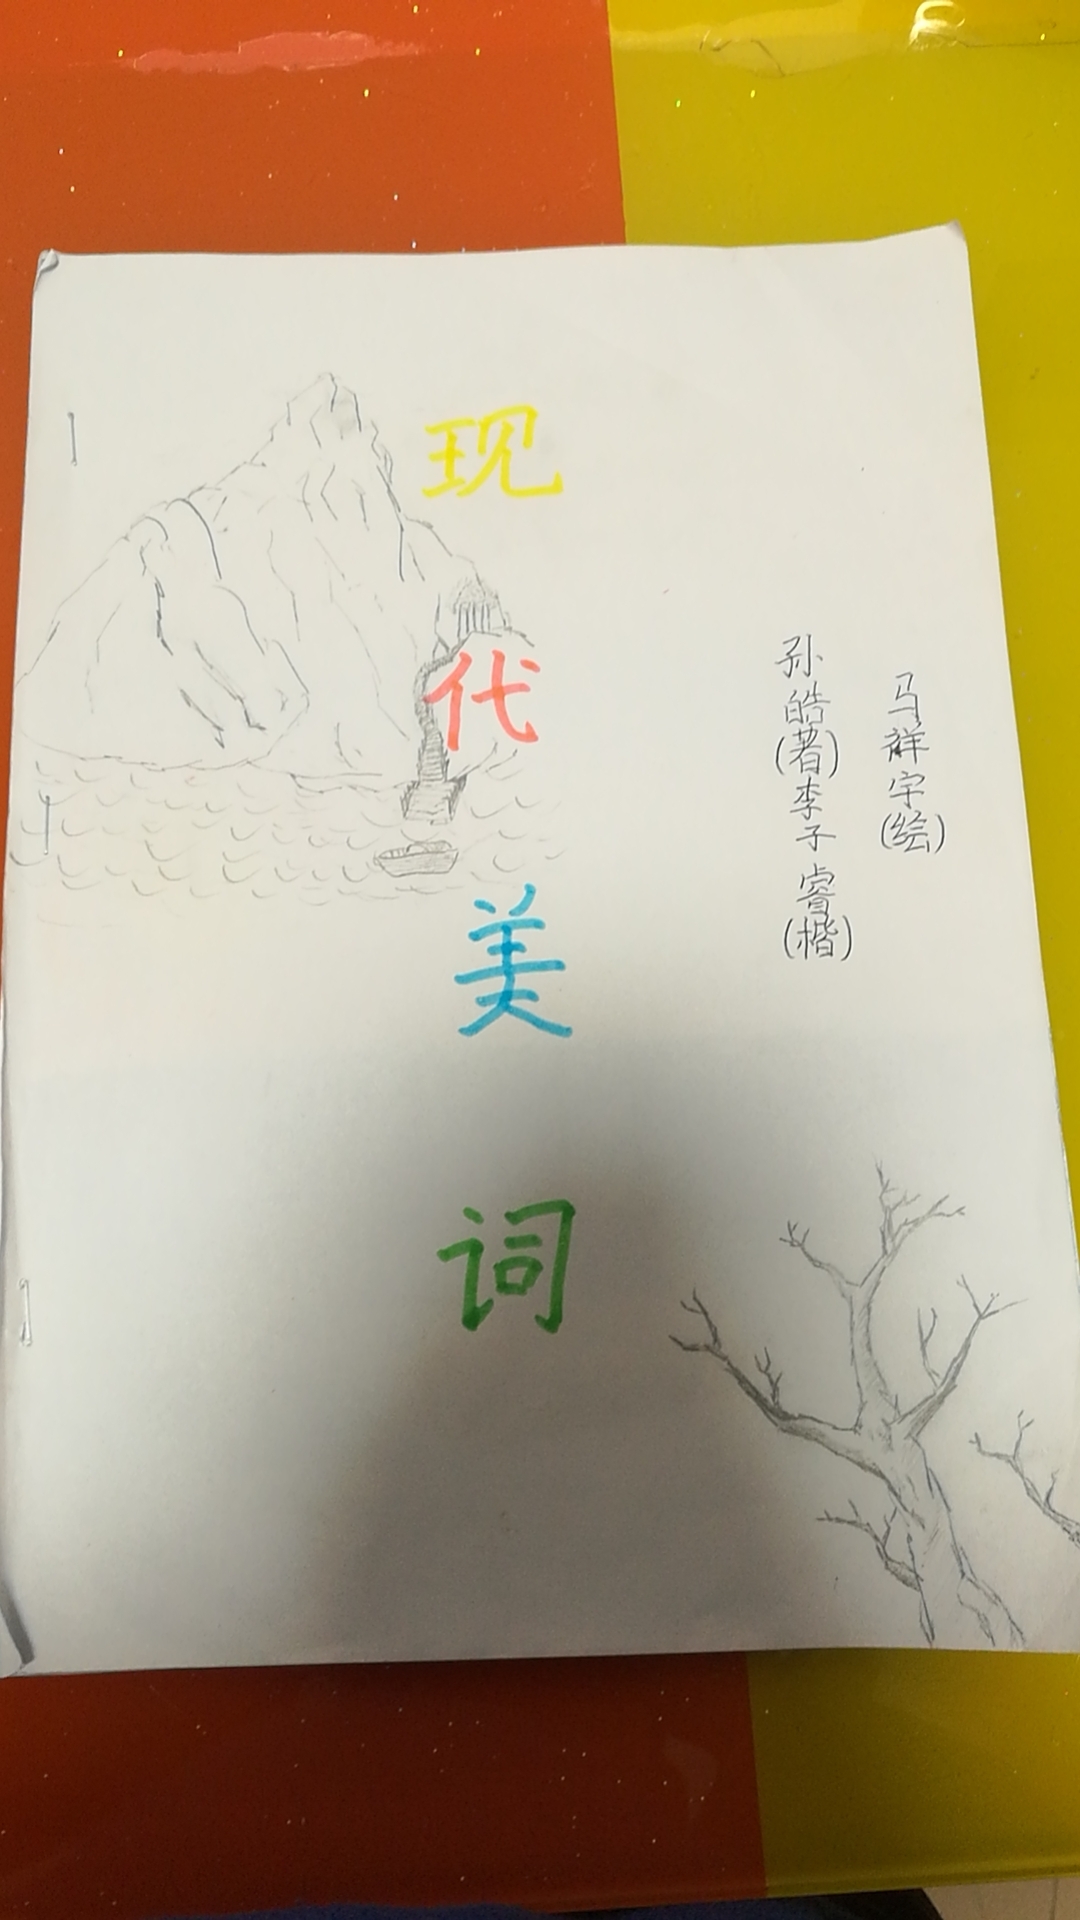 现代美词
孙皓(著)李子睿(楷)
马祥宇(绘)